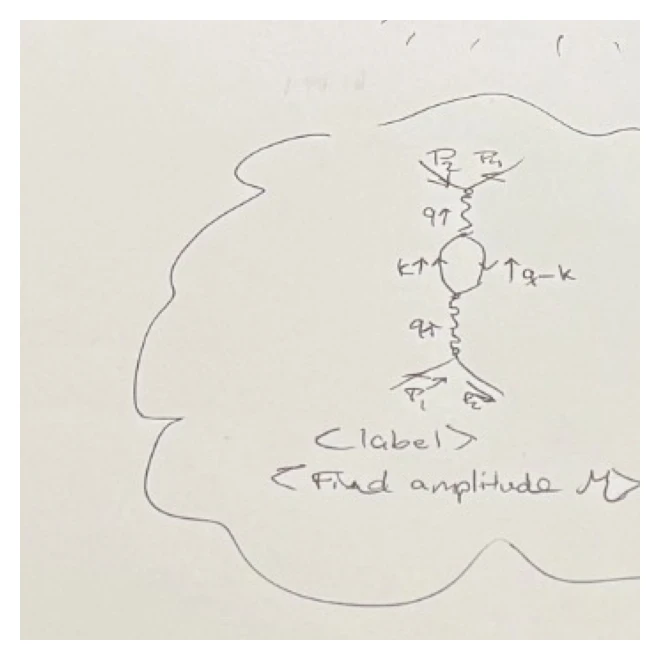 P₂ P₄
q↑
k↑ ↑q-k
q↑
P₁ P₂
<label>
<Find amplitude M>